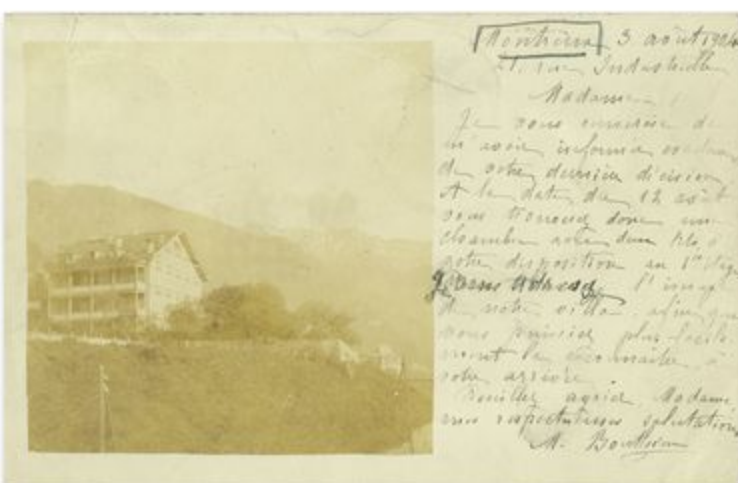 Montreux 3 août 1904
21, rue Industrielle
Madame
Je vous remercie de
m'avoir informée
de votre dernière décision
A la date du 12 août
vous trouverez donc une
chambre avec deux lits à
votre disposition au 1er étage
Je vous adresse l'image
de notre villa, afin que
vous puissiez plus facile-
ment la reconnaître à
votre arrivée.
Veuillez agréer, Madame
mes respectueuses salutations
M.